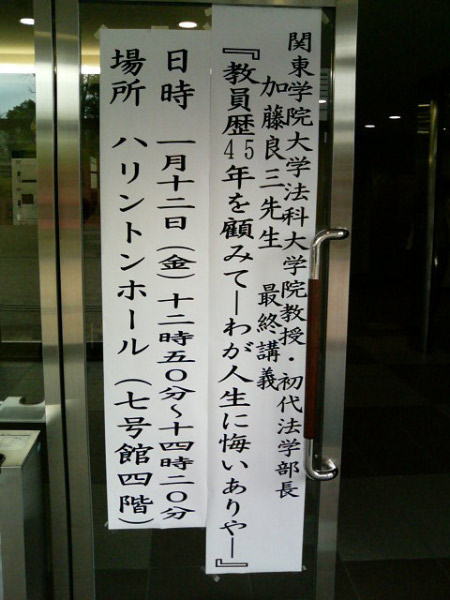 関東学院大学法科大学院教授・初代法学部長
加藤良三先生 最終講義
『教員歴45年を顧みてーわが人生に悔いありやー』
日時 一月十二日(金)十二時五〇分~十四時二〇分
場所 ハリントンホール(七号館四階)